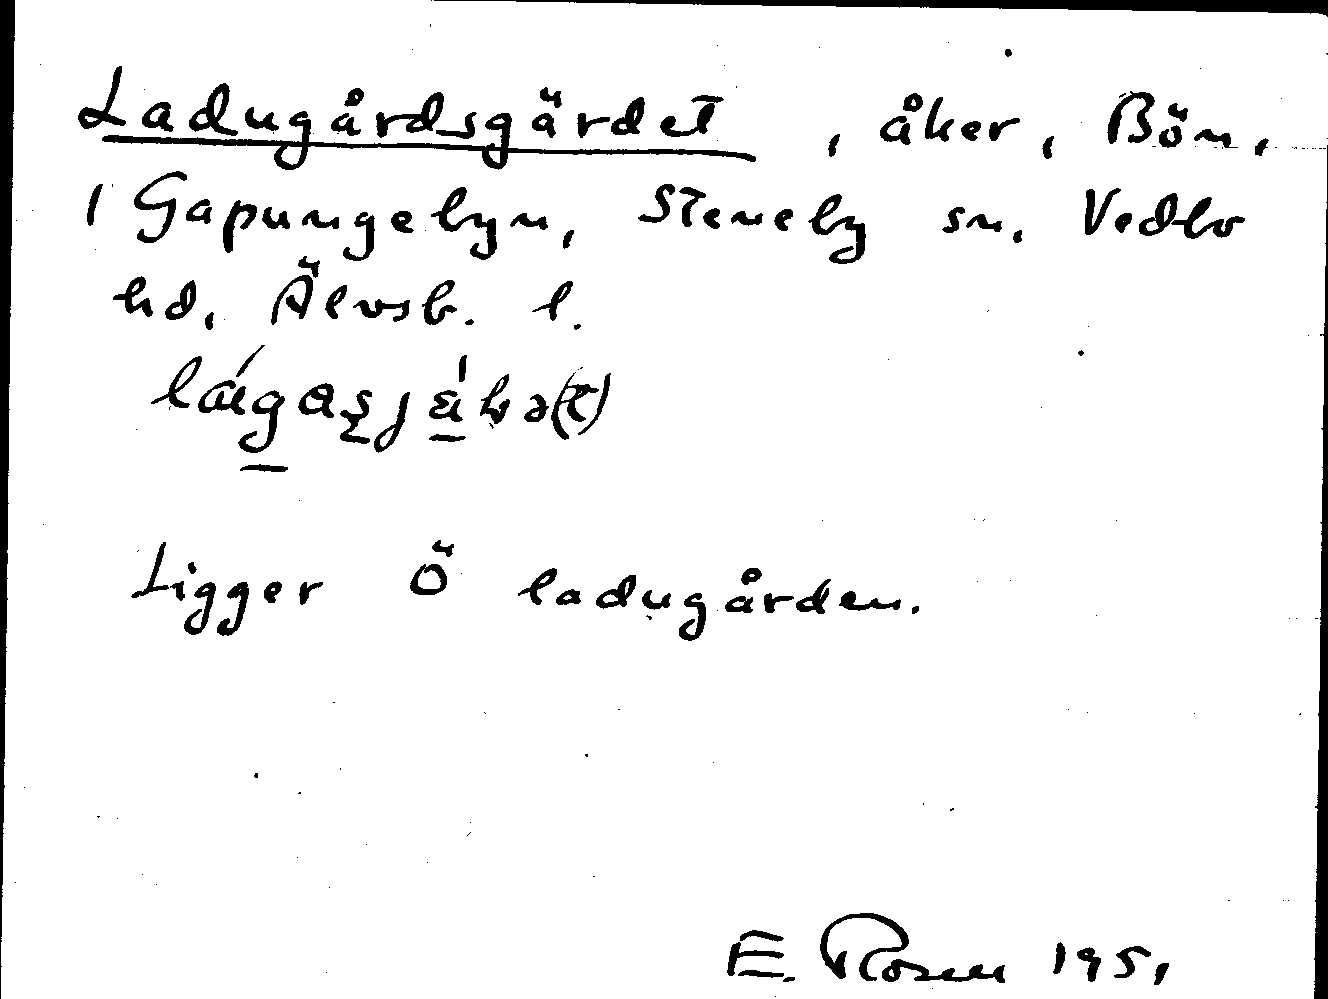 Ladugårdsgärdet, åker, Bön,
1 Gapungebyn, Steneby sn. Vedbo
hd, Älvsb. l.
Ligger Ö ladugården.
E. Rosen 1951